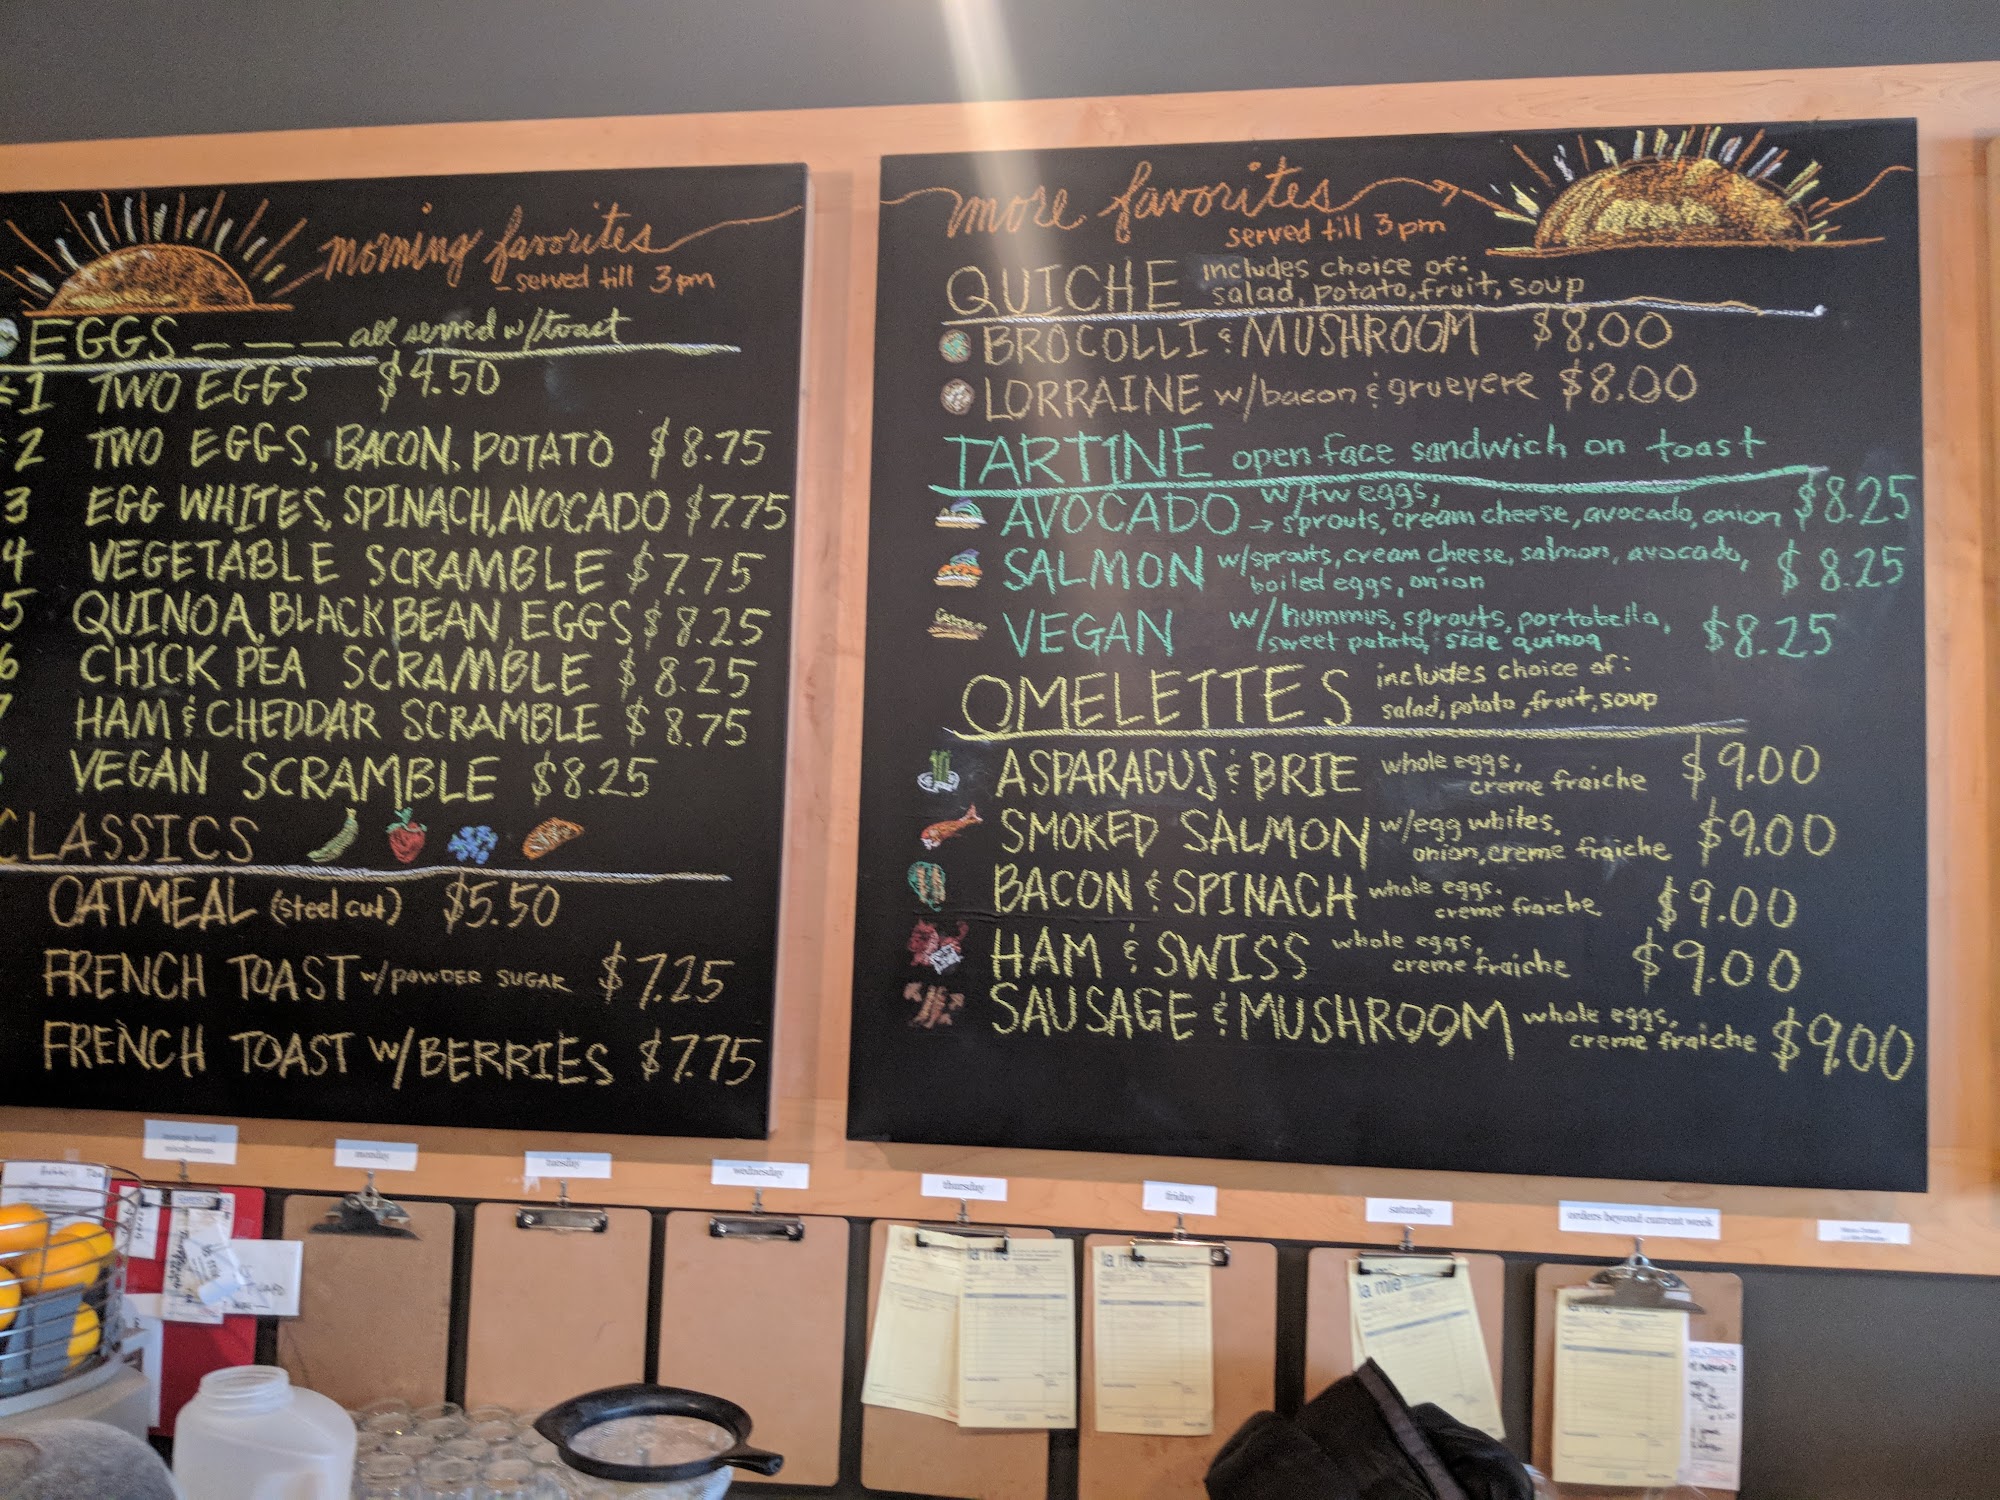 morning favorites
- served till 3pm
EGGS _ _ _ _ all served w/toast
#1 TWO EGGS $4.50
2 TWO EGGS, BACON, POTATO $8.75
3 EGG WHITES, SPINACH, AVOCADO $7.75
4 VEGETABLE SCRAMBLE $7.75
5 QUINOA, BLACK BEAN, EGGS $8.25
6 CHICK PEA SCRAMBLE $8.25
7 HAM & CHEDDAR SCRAMBLE $8.75
VEGAN SCRAMBLE $8.25
CLASSICS
OATMEAL (steel cut) $5.50
FRENCH TOAST w/POWDER SUGAR $7.25
FRENCH TOAST w/BERRIES $7.75
more favorites
served till 3pm
QUICHE includes choice of:
salad, potato, fruit, soup
BROCOLLI & MUSHROOM $8.00
LORRAINE w/bacon & grueyere $8.00
TARTINE open face sandwich on toast
AVOCADO w/ eggs,
→ sprouts, cream cheese, avocado, onion $8.25
SALMON w/sprouts, cream cheese, salmon, avocado,
boiled eggs, onion $8.25
VEGAN w/hummus, sprouts, portobella,
/sweet potato, side quinoa $8.25
OMELETTES includes choice of:
salad, potato, fruit, soup
ASPARAGUS & BRIE whole eggs,
creme fraiche $9.00
SMOKED SALMON w/egg whites,
onion, creme fraiche $9.00
BACON & SPINACH whole eggs,
creme fraiche $9.00
HAM & SWISS whole eggs,
creme fraiche $9.00
SAUSAGE & MUSHROOM whole eggs,
creme fraiche $9.00
monday
tuesday
wednesday
thursday
friday
saturday
orders beyond current week
la mie
la mie
la mie